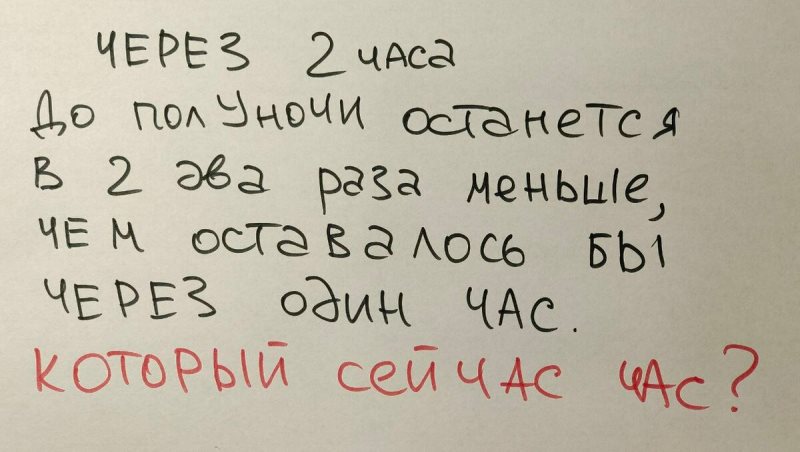 ЧЕРЕЗ 2 часа
До полУночи останется
в 2 два раза меньше,
чем оставалось бы
ЧЕРЕЗ один ЧАС.
который сейчас час?